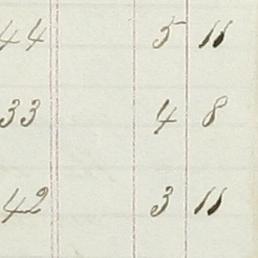 44 5 11
33 4 8
42 3 11